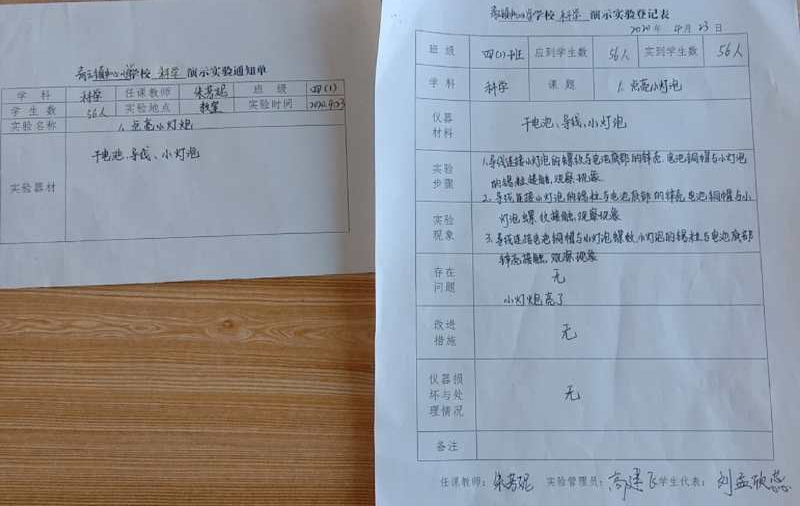 学校 科学 演示实验通知单
学科 科学 任课教师 班级 四(1)
学生数 56人 实验地点 教室 实验时间 2020.4.23
实验名称 1.点亮小灯炮
实验器材 干电池、导线、小灯泡
学校 科学 演示实验登记表
2020年 4月 23日
班级 四(1)班 应到学生数 56人 实到学生数 56人
学科 科学 课题 1.点亮小灯泡
仪器材料 干电池、导线、小灯泡
实验步骤
1.导线连接小灯泡的螺纹与电池底部的锌壳,电池铜帽与小灯泡
的锡柱接触,观察现象
2.导线连接小灯泡的锡柱与电池底部的锌壳,电池铜帽与小
灯泡螺纹接触,观察现象
实验现象
3.导线连接电池铜帽与小灯泡螺纹,小灯泡的锡柱与电池底部
锌壳接触,观察现象
存在问题 无
小灯炮亮了
改进措施 无
仪器损坏与处理情况 无
备注
任课教师: 实验管理员:高建飞 学生代表:刘孟欣蕊